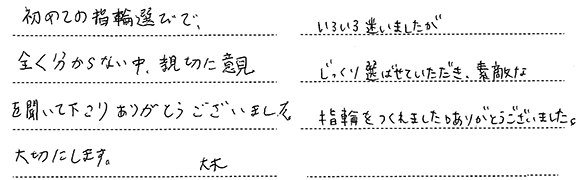 初めての指輪選びで、
全く分からない中、親切に意見
を聞いて下さりありがとうございました
大切にします。
いろいろ迷いましたが
じっくり選ばせていただき、素敵な
指輪をつくれました。ありがとうございました。